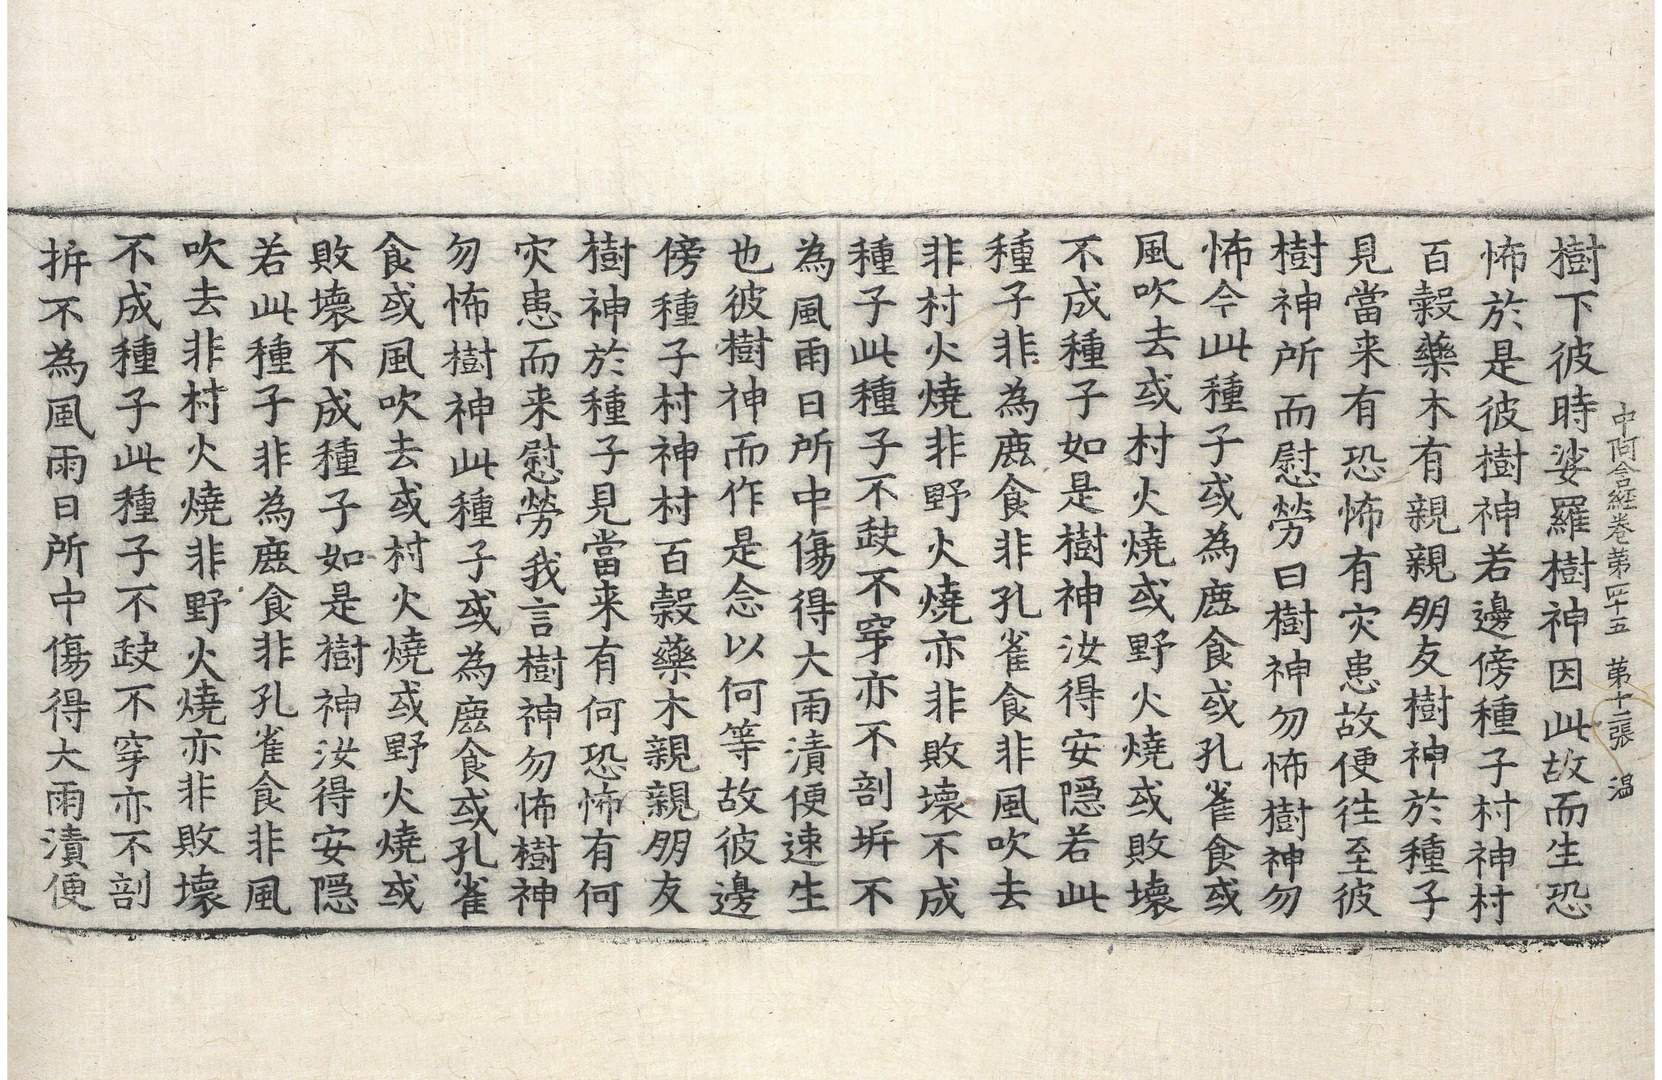 中阿含経卷第四十五 第十二張 温
樹下彼時娑羅樹神因此故而生恐
怖於是彼樹神若邊傍種子村神村
百穀藥木有親親朋友樹神於種子
見當来有恐怖有灾患故便往至彼
樹神所而慰勞曰樹神勿怖樹神勿
怖今此種子或為鹿食或孔雀食或
風吹去或村火燒或野火燒或敗壞
不成種子如是樹神汝得安隱若此
種子非為鹿食非孔雀食非風吹去
非村火燒非野火燒亦非敗壞不成
種子此種子不缺不穿亦不剖坼不
為風雨日所中傷得大雨漬便速生
也彼樹神而作是念以何等故彼邊
傍種子村神村百穀藥木親親朋友
樹神於種子見當来有何恐怖有何
灾患而来慰勞我言樹神勿怖樹神
勿怖樹神此種子或為鹿食或孔雀
食或風吹去或村火燒或野火燒或
敗壞不成種子如是樹神汝得安隱
若此種子非為鹿食非孔雀食非風
吹去非村火燒非野火燒亦非敗壞
不成種子此種子不缺不穿亦不剖
坼不為風雨日所中傷得大雨漬便